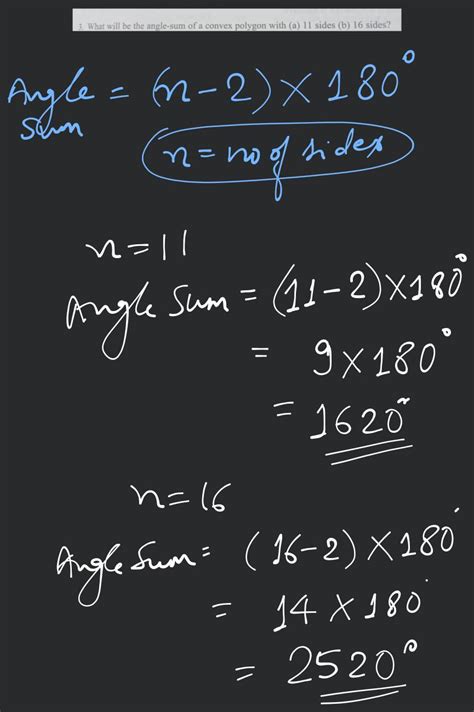 3. What will be the angle-sum of a convex polygon with (a) 11 sides (b) 16 sides?
Angle Sum = (n-2)×180°
n = no of sides
n=11
Angle Sum = (11-2)×180°
= 9×180°
= 1620°
n=16
Angle Sum = (16-2)×180°
= 14×180°
= 2520°